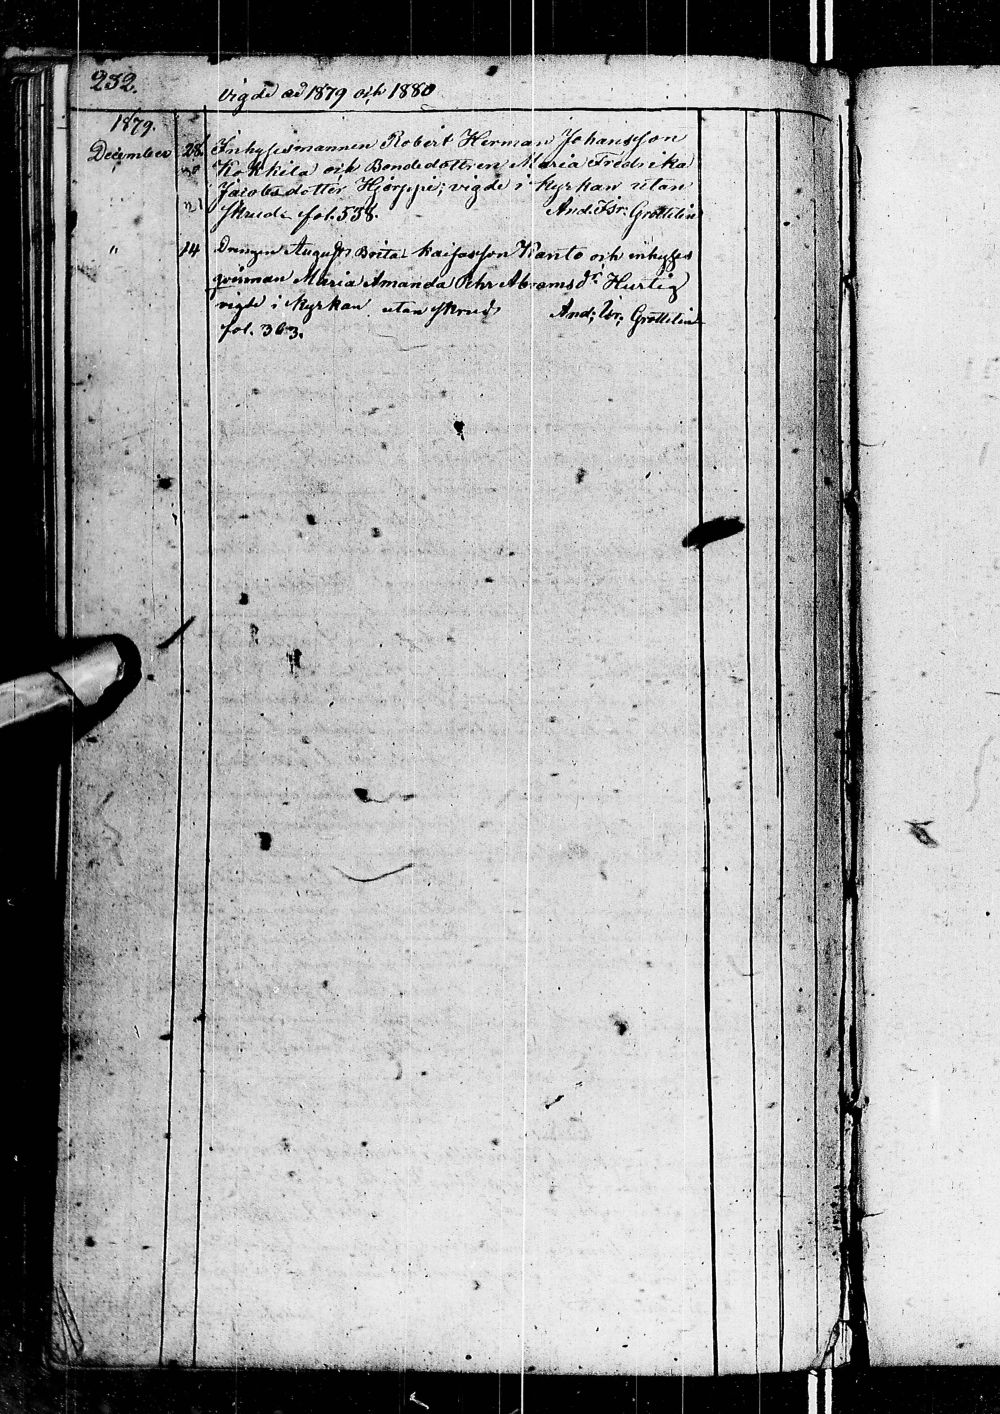 232.
vigde år 1879 och 1880
1879.
December 28. Inhysesmannen Robert Herman Johansson
Kokkila och Bondedottren Maria Fredrika
Jacobsdotter Hjerppe; vigde i kyrkan utan
skrud. fol. 538. And. Isr. Grottelin
" 14 Drengen August Brita Kaisasson Kanto och inhyses
qvinnan Maria Amanda Pehr Abramsdr Hurtig
vigde i kyrkan utan skrud And; Isr; Grottelin
fol. 363.